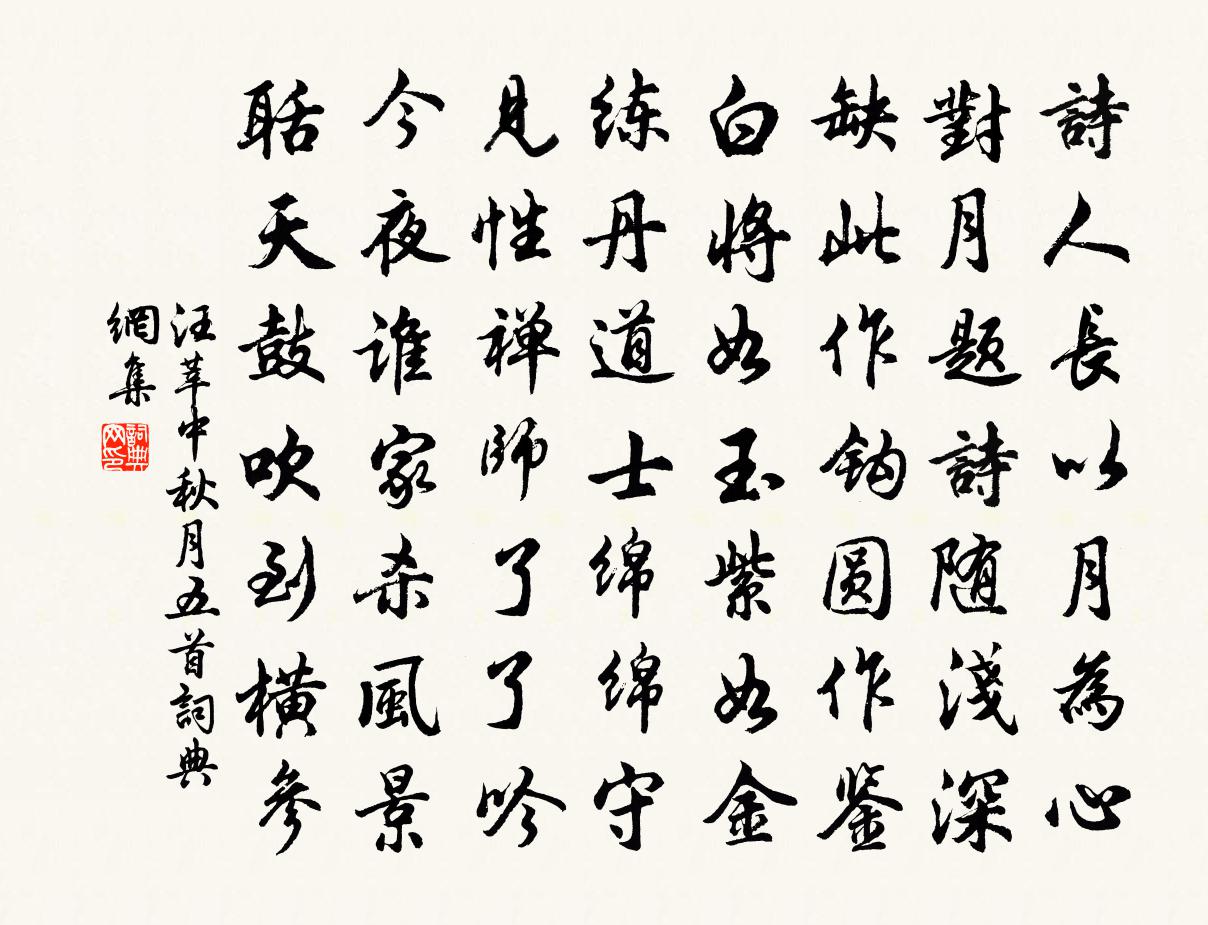 詩人長以月為心
對月題詩随淺深
缺此作钩圆作鉴
白將如玉紫如金
练丹道士绵绵守
見性禅師了了吟
今夜谁家杀風景
聒天鼓吹到橫參
汪莘中秋月五首詞典
網集
詞典网印